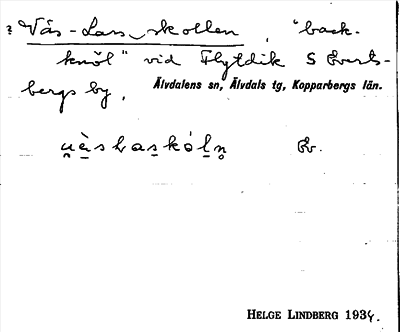 ? Vås-Lars skollen, "back-
knöl" vid Flytdik S Everts-
bergs by,
Älvdalens sn, Älvdals tg, Kopparbergs län.
Ev.
HELGE LINDBERG 1934.